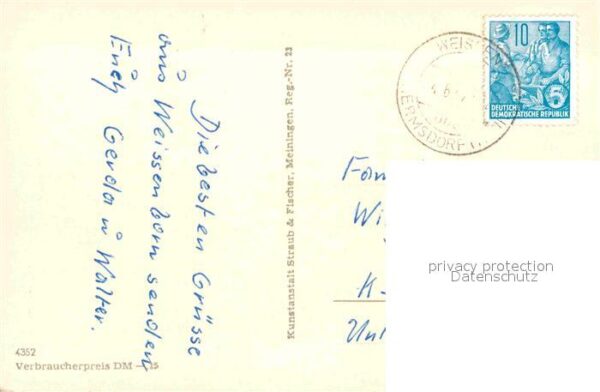 Die besten Grüsse
aus Weissenborn senden
Euch Gerda u Walter.
Kunstanstalt Straub & Fischer, Meiningen, Reg.-Nr. 23
4352
Verbraucherpreis DM -.25
10
5
DEUTSCHE
DEMOKRATISCHE REPUBLIK
Fam
K-
privacy protection
Datenschutz